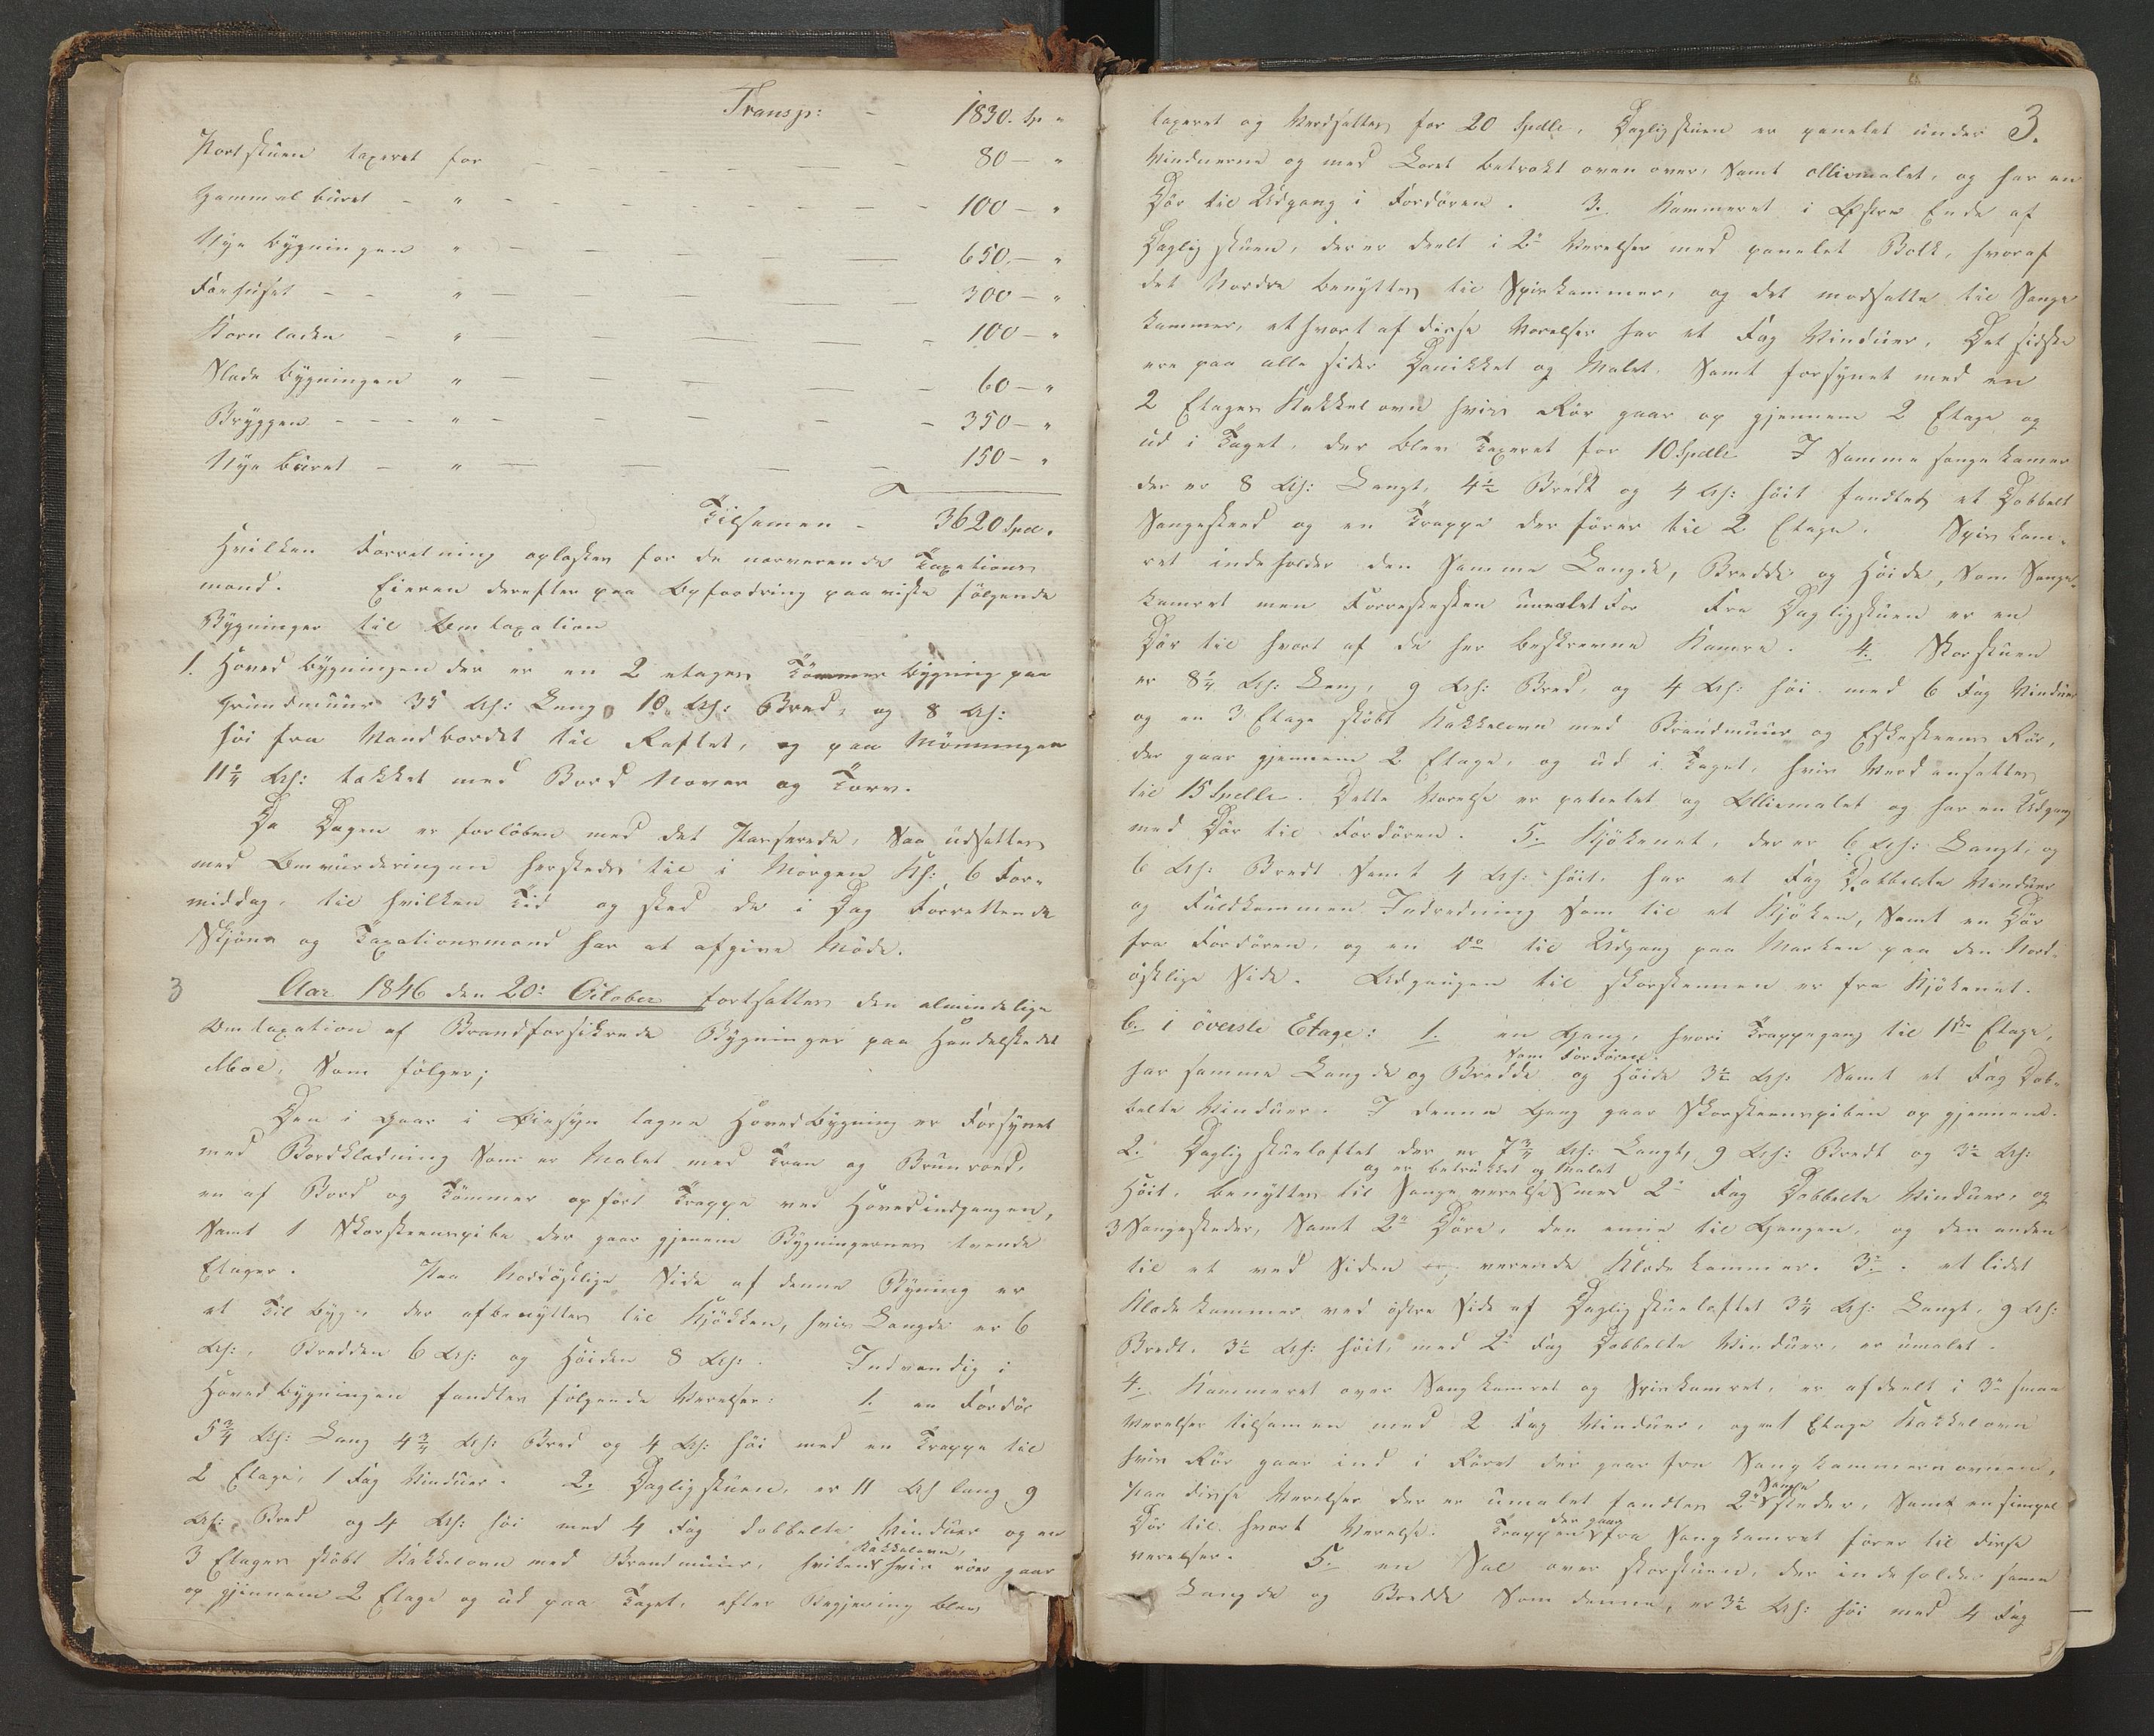 Transp: - 1830. Sp "
Portstuen taxeret for - - - - - 80 - "
Gammel buret - " - - - - - 100 - "
Nye bygningen " - - - - - 650. - "
Fæehuset - - " - - - - - 300 - "
Kornladen - " - - - - - 100 - "
Slade bygningen " - - - - - 60 - "
Bryggen - - - " - - - - - 350 - "
Nye buret - " - - - - - 150 - "
Tilsamen - 3620 Spd.
Hvilken Forretning oplæstes for de nærværende Taxations
mænd. Eieren derefter paa Opfordring paaviste følgende
Bygninger til Omtaxation
1. Hovedbygningen der er en 2 etages Tømmerbygning paa
Grundmuur 35 Al: Lang 10 Al: Bred, og 8 Al:
høi fra Vandbordet til Raftet, og paa Mønningen
11 1/4 Al: tækket med Bord Næver og Torv.
Da Dagen er forløben med det Passerede, saa udsættes
med Omvurderingen herstedes til i Morgen Kl: 6 For-
middag, til hvilken Tid og sted de i Dag Forrettende
Skjøns og Taxationsmænd har at afgive Møde.
3 Aar 1846 den 20: October fortsattes den almindelige
Omtaxation af Brandforsikrede Bygninger paa Handelstedet
Moe, som følger;
Den i Gaar i Øiesyn tagne Hovedbygning er Forsynet
med Bordklædning som er Malet med Tran og Brunrød,
en af Bord og Tømmer opført Trappe ved Hovedindgangen,
samt 1 Skorsteenspibe der gaar gjenem Bygningernes tvende
Etager. Paa Nordøstlige Side af denne Bygning er
et Tilbyg, der afbenyttes til Kjøkken, hvis Længde er 6
Al:, Bredden 6 Al: og Høiden 8 Al:. Indvendig i
Hovedbygningen fandtes følgende Værelser: 1. en Fordør
5 3/4 Al: Lang 4 3/4 Al: Bred og 4 Al: høi med en Trappe til
2 Etage, 1 Fag Vinduer. 2. Dagligstuen, er 11 Al lang 9
Al: Bred og 4 Al: høi med 4 Fag dobbelte Vinduer og en
Kakkelovn,
3 Etages støbt Kakkelovn med Brandmuur, hvilken hvis rør gaar
op gjennem 2 Etage og ud paa Taget, efter Begjering blev
3.
taxeret og Værdsattes for 20 Spdlr, Dagligstuen er panelet under
Vinduerne og med Læret betrækt oven over, samt olliemalet, og har en
Dør til Udgang i Fordøren. 3. Kammeret i Østre Ende af
Dagligstuen, der er deelt i 2de Værelser med panelet Bolk, hvoraf
det Nordre benyttes til Spiskammer, og det modsatte til Senge
kammer, et hvert af disse Værelser har et Fag Vinduer. Det sidste
ere paa alle sider Panikket og Malet. Samt forsynet med en
2 Etages Kakkelovn hvis Rør gaar op gjennem 2 Etage og
ud i Taget, der blev Taxeret for 10 Spdlr I samme sengekamer
der er 8 Al: Langt, 4 1/2 Bredt og 4 Al: høit fandtes et Dobbelt
Sengesteed og en Trappe der fører til 2 Etage. Spiskam-
ret indeholder den samme Længde, Bredde og Høide, som Senge-
kamret men Forrestesten umalet For Fra Dagligstuen er en
Dør til hvert af de her beskrevne Kamre. 4. Storstuen
er 8 1/4 Al: Lang, 9 Al: Bred, og 4 Al: høi med 6 Fag Vinduer
og en 3 Etage støbt Kakkelovn med Brandmuur og Rør,
der gaar gjennem 2 Etage, og ud i Taget, hvis Værd ansattes
til 15 Spdlr. Dette Værelse er panelet og Olliemalet og har en Udgang
med Dør til Fordøren. 5. Kjøkenet, der er 6 Al: Langt, og
6 Al: Bredt samt 4 Al: høit, har et Fag Dobbelte Vinduer
og Fuldkommen Indredning som til et Kjøken, samt en Dør
fra Fordøren, og en do til Udgang paa Marken paa den Nord-
østlige Side. Udgangen til skorstennen er fra Kjøkenet.
6. i øverste Etage: 1. en Gang, hvori Trappegang til 1ste Etage,
som Fordøren.
har samme Længde og Bredde og Høide 3 1/2 Al: samt et Fag Dob-
belte Vinduer. I denne Gang gaar Skorsteenspiben op gjennem.
2. Dagligstueloftet der er 7 3/4 Al: Langt, 9 Al: Bredt og 3 1/2 Al:
og er betrukket og Malet
Høit, benyttes til senge værelse med 2de Fag Dobbelte Vinduer, og
3 Sengesteder, samt 2de Døre, den eene til Gangen, og den anden
til et ved Siden værende Klædekammer. 3. et lidet
Klædekammer ved østre Side af Dagligstueloftet 3 1/4 Al: Langt, 9 Al:
Bredt, 3 1/2 Al: høit, med 2de Fag Dobbelte Vinduer, er umalet.
4. Kammeret over Sengkamret og Spiskamret, er afdeelt i 3de smaa
Værelser tilsamen med 2 Fag Vinduer, og en 1 Etage Kakkelovn
hvis Rør gaar ind i Røret der gaar fra Sengkammersovnen.
Senge
Paa disse Værelser der er umalet fandtes 2de steder, samt en simpel
der gaar
Dør til hvert Værelse. Trappen fra Sengkamret fører til disse
værelser. 5. en Sal over storstuen, der indeholder same
Længde og Bredde som denne, er 3 1/2 Al: høi med 4 Fag